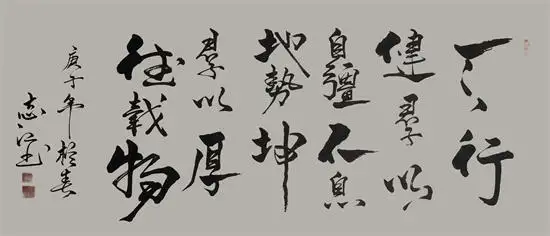 天行
健君子以
自彊不息
地勢坤
君子以厚
德載物
庚子年春
志江书